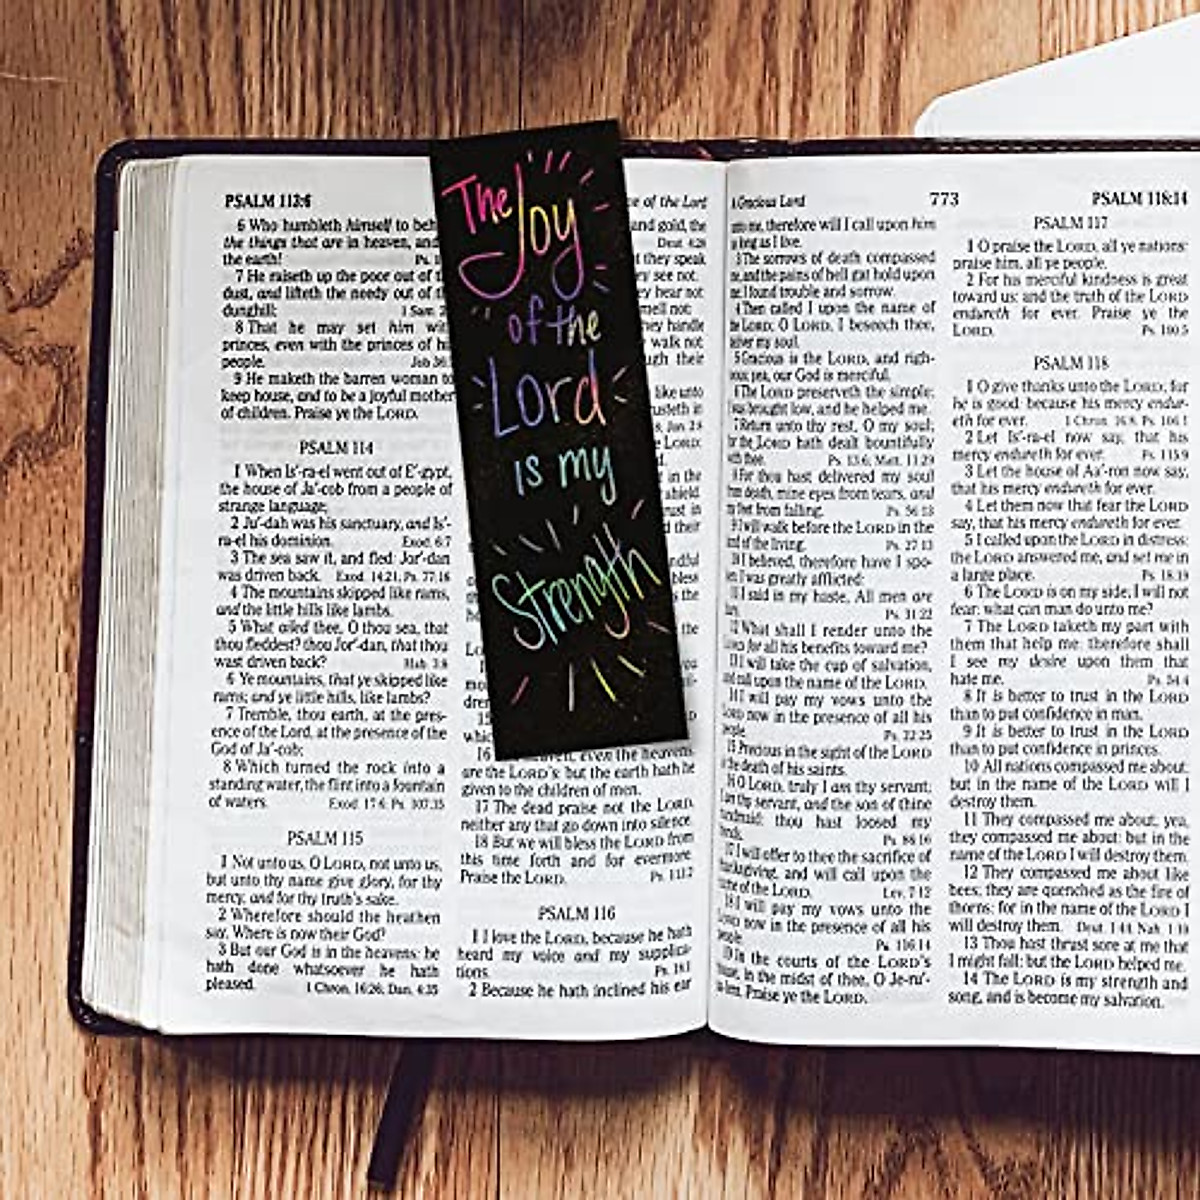 PSALM 113:6
6 Who humbleth himself to beh
the things that are in heaven, and
the earth! Ps. 1
7 He raiseth up the poor out of t
dust, and lifteth the needy out of t
dunghill; 1 Sam. 2
8 That he may set him wit
princes, even with the princes of his
people. Job 36:
9 He maketh the barren woman to
keep house, and to be a joyful mother
of children. Praise ye the LORD.
PSALM 114
1 When Is'-ra-el went out of E'-gypt,
the house of Ja'-cob from a people of
strange language;
2 Ju'-dah was his sanctuary, and Is'-
ra-el his dominion. Exod. 6:7
3 The sea saw it, and fled: Jor'-dan
was driven back. Exod. 14:21, Ps. 77:16
4 The mountains skipped like rams,
and the little hills like lambs.
5 What ailed thee, O thou sea, that
thou fleddest? thou Jor'-dan, that thou
wast driven back? Hab. 3:8
6 Ye mountains, that ye skipped like
rams; and ye little hills, like lambs?
7 Tremble, thou earth, at the pres-
ence of the Lord, at the presence of the
God of Ja'-cob;
8 Which turned the rock into a
standing water, the flint into a fountain
of waters. Exod. 17:6, Ps. 107:35
PSALM 115
1 Not unto us, O LORD, not unto us,
but unto thy name give glory, for thy
mercy, and for thy truth's sake.
2 Wherefore should the heathen
say, Where is now their God?
3 But our God is in the heavens: he
hath done whatsoever he hath
pleased. 1 Chron. 16:26, Dan. 4:35
The
Joy
of the
Lord
is my
Strength
ce of the Lord
and gold, the
Deut. 4:28
they speak
ey see not.
ey hear not
mell not:
hey handle
walk not
ugh their
like unto
rusteth in
LORD:
in the
shield.
trust in
their
ndful
bless
the
the
you
15
16 heaven, even the heavens,
are the LORD'S: but the earth hath he
given to the children of men.
17 The dead praise not the LORD,
neither any that go down into silence.
18 But we will bless the LORD from
this time forth and for evermore.
Praise the LORD. Ps. 113:2
PSALM 116
1 I love the LORD, because he hath
heard my voice and my supplica-
tions. Ps. 18:1
2 Because he hath inclined his ear
A Gracious Lord 773
me, therefore will I call upon him
as long as I live.
3 The sorrows of death compassed
me, and the pains of hell gat hold upon
me: I found trouble and sorrow.
4 Then called I upon the name of
the LORD; O LORD, I beseech thee,
deliver my soul.
5 Gracious is the LORD, and right-
eous; yea, our God is merciful.
6 The LORD preserveth the simple:
I was brought low, and he helped me.
7 Return unto thy rest, O my soul;
for the LORD hath dealt bountifully
with thee. Ps. 13:6, Matt. 11:29
8 For thou hast delivered my soul
from death, mine eyes from tears, and
my feet from falling. Ps. 56:13
9 I will walk before the LORD in the
land of the living. Ps. 27:13
10 I believed, therefore have I spo-
ken: I was greatly afflicted:
11 I said in my haste, All men are
liars. Ps. 31:22
12 What shall I render unto the
LORD for all his benefits toward me?
13 I will take the cup of salvation,
and call upon the name of the LORD.
14 I will pay my vows unto the
LORD now in the presence of all his
people. Ps. 22:25
15 Precious in the sight of the LORD
is the death of his saints.
16 O LORD, truly I am thy servant;
I am thy servant, and the son of thine
handmaid: thou hast loosed my
bonds. Ps. 86:16
17 I will offer to thee the sacrifice of
thanksgiving, and will call upon the
name of the LORD. Lev. 7:12
18 I will pay my vows unto the
LORD now in the presence of all his
people, Ps. 116:14
19 In the courts of the LORD'S
house, in the midst of thee, O Je-ru'-
sa-lem. Praise ye the LORD.
PSALM 118:14
PSALM 117
1 O praise the LORD, all ye nations:
praise him, all ye people.
2 For his merciful kindness is great
toward us: and the truth of the LORD
endureth for ever. Praise ye the
LORD. Ps. 100:5
PSALM 118
1 O give thanks unto the LORD; for
he is good: because his mercy endur-
eth for ever. 1 Chron. 16:8, Ps. 106:1
2 Let Is'-ra-el now say, that his
mercy endureth for ever. Ps. 115:9
3 Let the house of Aa'-ron now say,
that his mercy endureth for ever.
4 Let them now that fear the LORD
say, that his mercy endureth for ever.
5 I called upon the LORD in distress:
the LORD answered me, and set me in
a large place. Ps. 18:19
6 The LORD is on my side; I will not
fear: what can man do unto me?
7 The LORD taketh my part with
them that help me: therefore shall
I see my desire upon them that
hate me. Ps. 54:4
8 It is better to trust in the LORD
than to put confidence in man.
9 It is better to trust in the LORD
than to put confidence in princes.
10 All nations compassed me about:
but in the name of the LORD will I
destroy them.
11 They compassed me about; yea,
they compassed me about: but in the
name of the LORD I will destroy them.
12 They compassed me about like
bees; they are quenched as the fire of
thorns: for in the name of the LORD I
will destroy them. Deut. 1:44, Nah. 1:10
13 Thou hast thrust sore at me that
I might fall: but the LORD helped me.
14 The LORD is my strength and
song, and is become my salvation.